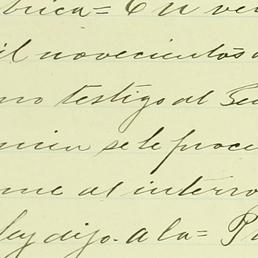 brica= En ve
il novecientos
mo testigo al Se
mia se le proce
me al interro
ley dijo. A la= P